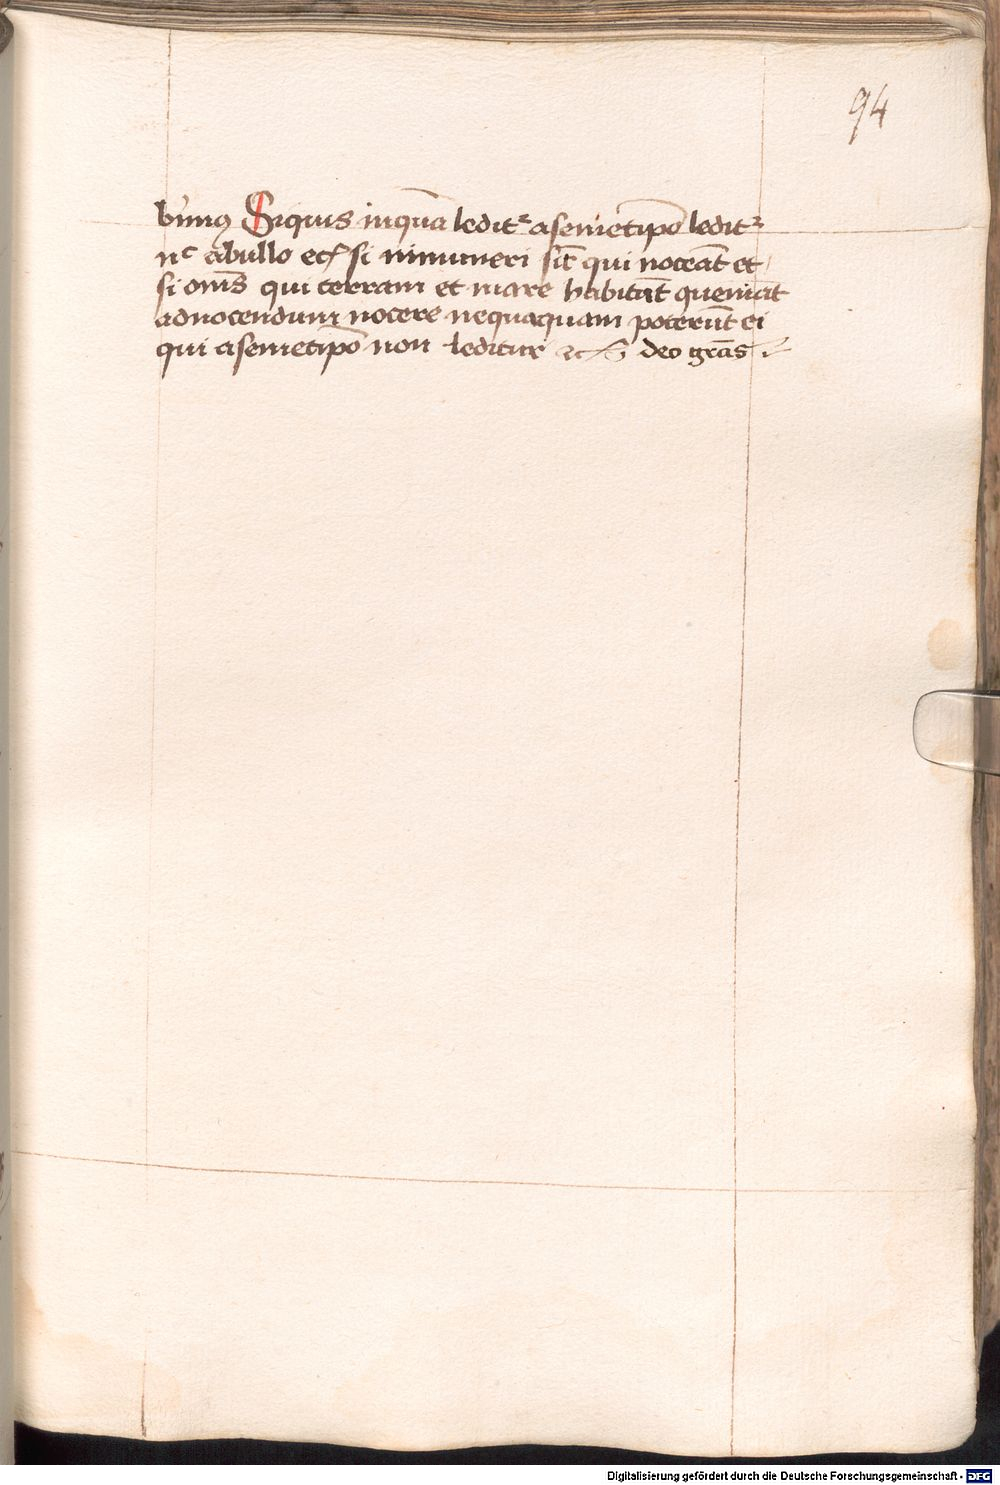 94
bimus Siquis inqua̅ ledit᷑ asemetip̅o ledit᷑
nc abullo etsi innumeri sīt qui noceāt et
si om̅s qui terram et mare habitāt queniāt
adnocendum nocere nequaquam poterūt ei
qui asemetip̅o non leditur ⁊c deo gr̅as
Digitalisierung gefördert durch die Deutsche Forschungsgemeinschaft - DFG